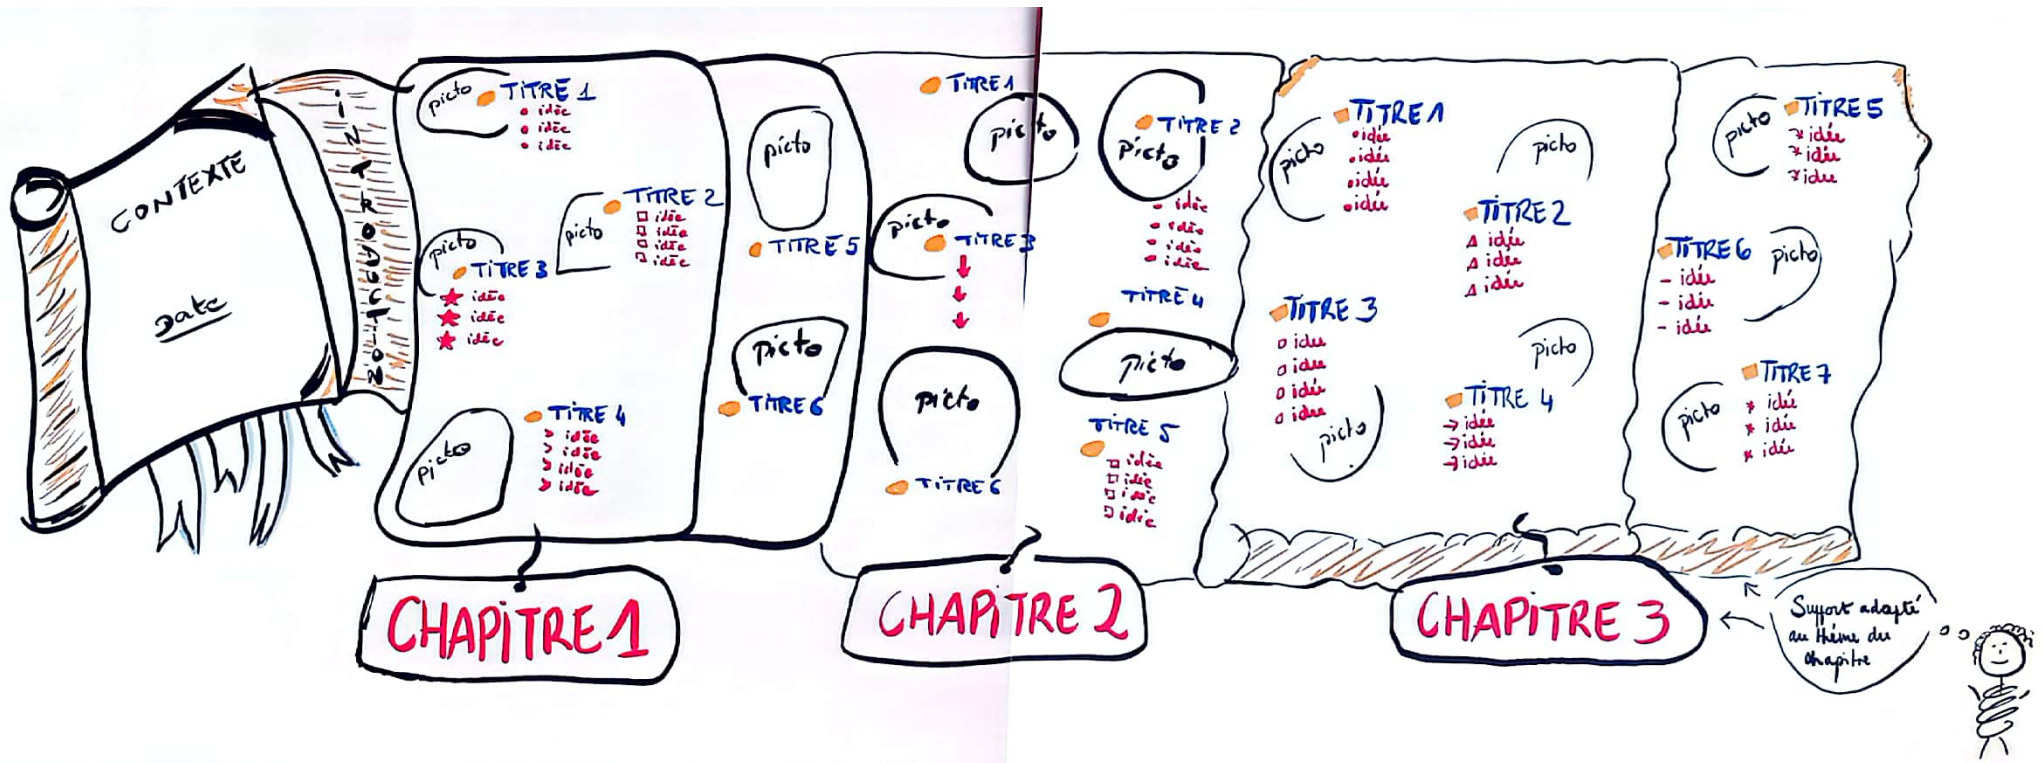 CONTEXTE
Date
iNTRODUCTION
picto
TiTRE 1
idée
idée
idée
picto
TiTRE 2
idée
idée
idée
idée
picto
TiTRE 3
idée
idée
idée
picto
TiTRE 4
> idée
> idée
> idée
> idée
picto
TiTRE 5
picto
TiTRE 6
CHAPiTRE 1
TiTRE 1
picto
TiTRE 2
picto
idée
idée
idée
idée
picto
TiTRE 3
TiTRE 4
picto
TiTRE 5
idée
idée
idée
idée
picto
TiTRE 6
CHAPiTRE 2
TiTRE 1
picto
idée
idée
idée
idée
picto
TiTRE 2
idée
idée
idée
TiTRE 3
idée
idée
idée
idée
picto
picto
TiTRE 4
→ idée
→ idée
→ idée
picto
TiTRE 5
* idée
* idée
* idée
TiTRE 6
picto
- idée
- idée
- idée
TiTRE 7
picto
* idée
* idée
* idée
CHAPiTRE 3
Support adapté
au thème du
chapitre